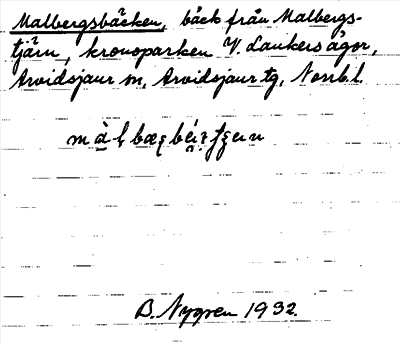 Malbergsbäcken, bäck från Malbergs-
tjärn, kronoparken V. Lankers ägor,
Arvidsjaur sn, Arvidsjaur tg, Norrb.l.
B. Nygren 1932.